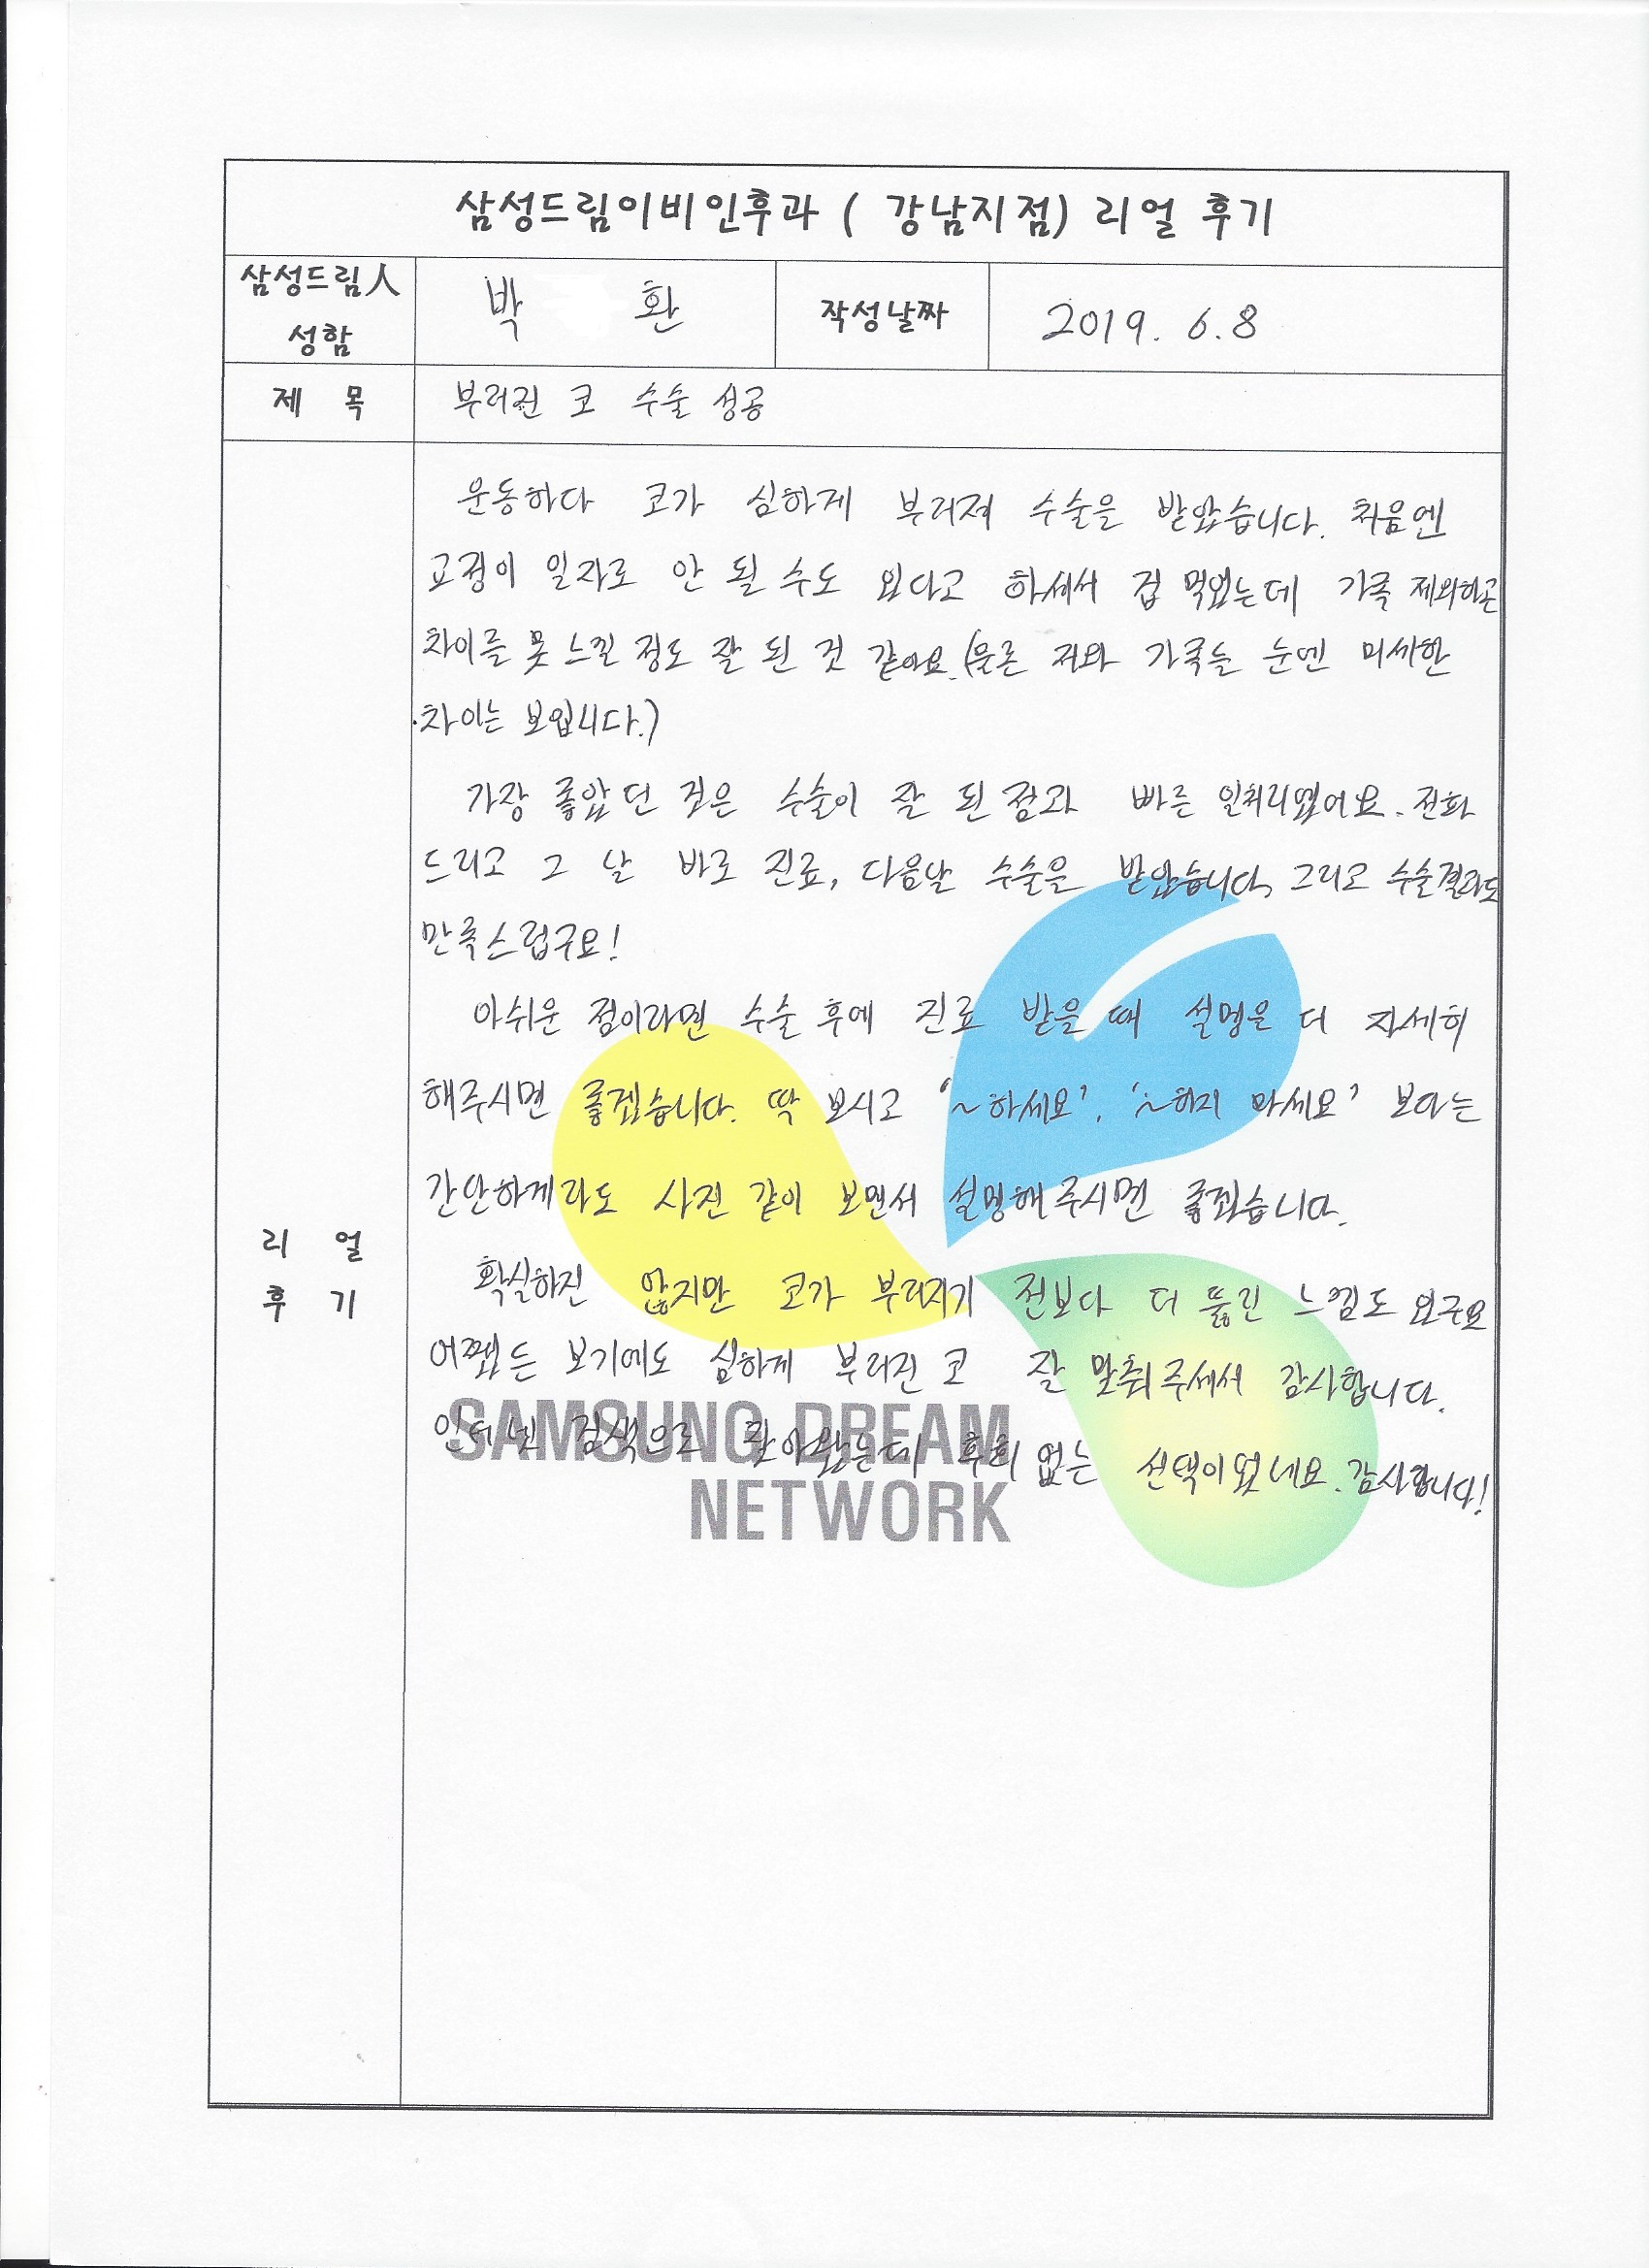 삼성드림이비인후과 ( 강남지점) 리얼 후기
삼성드림人
성함
박 환
작성날짜
2019. 6. 8
제 목
부러진 코 수술 성공
운동하다 코가 심하게 부러져 수술을 받았습니다. 처음엔
교정이 일자로 안 될 수도 있다고 하셔서 겁 먹었는데 가족 제외하곤
차이를 못 느낄 정도 잘 된 것 같아요.(물론 저와 가족들 눈엔 미세한
차이는 보입니다.)
가장 좋았던 것은 수술이 잘 된 점과 빠른 일처리였어요. 전화
드리고 그 날 바로 진료, 다음날 수술을 받았습니다. 그리고 수술결과도
만족스럽구요!
아쉬운 점이라면 수술 후에 진료 받을 때 설명을 더 자세히
해주시면 좋겠습니다. 딱 보시고 '~하세요', '~하지 마세요' 보다는
간단하게라도 사진 같이 보면서 설명해주시면 좋겠습니다.
리 얼
후 기
확실하진 않지만 코가 부러지기 전보다 더 뚫린 느낌도 있구요
어쨌든 보기에도 심하게 부러진 코 잘 맞춰주셔서 감사합니다.
인터넷 검색으로 찾아왔는데 후회 없는 선택이었네요. 감사합니다!
SAMSUNG DREAM
NETWORK